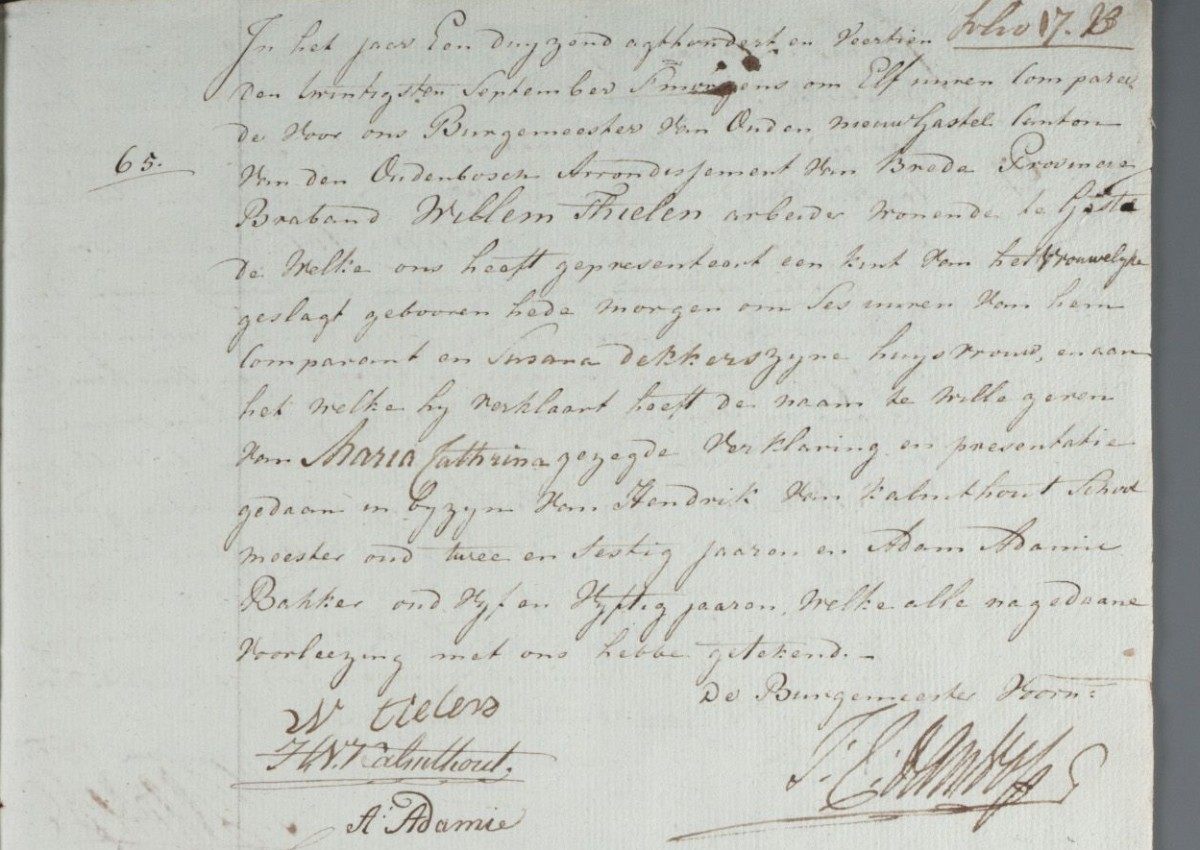 In het jaar Een duyzend agthondert en veertien folio 17.
den twintigsten September smorgens om Elf uuren Compareer
de voor ons Burgemeester van Ouden nieuw Gastel Canton
65.
van den Oudenbosch Arrondissement van Breda Provincie
Braband Willem Thielen arbeider wonende te Gastel
de welke ons heeft gepresenteert een kint van het vrouwelyke
geslagt gebooren hede morgen om ses uuren van hem
Comparant en Susana dekkers zyne huysvrouw, en aan
het welke hy verklaart heeft de naam te wille geven
van Maria Cathrina gezegde verklaring en presentatie
gedaan in byzyn van Hendrik van kalmthout School
meester oud twee en sestig jaaren en Adam Adamie
Bakker oud vyf en vyftig jaaren, welke alle na gedaane
voorleezing met ons hebbe getekend.-
De Burgemeester voorn:
W tielen
H V Kalmthout.
A: Adamie